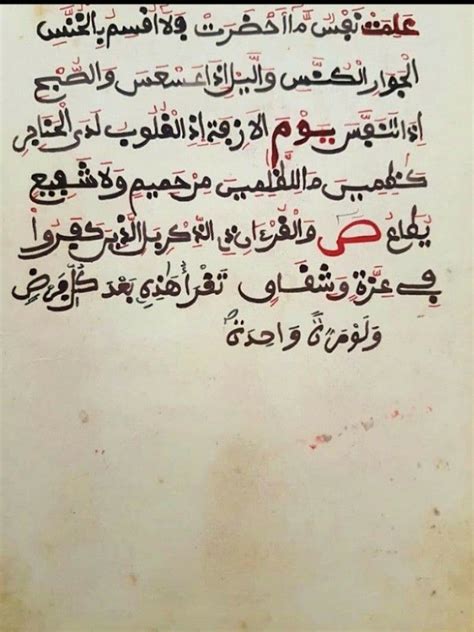 علمت نفس ما أحضرت ولا أقسم بالخنس
الجوار الكنس واليل إذا عسعس والصبح
إذا تنفس يوم الازفة إذ القلوب لدى الحناجر
كظمين ما للظلمين من حميم ولا شفيع
يطاع ص والقرءان ذي الذكر بل الذين كفروا
في عزة وشقاق تقرأ هذه بعد كل فرض
ولو مرة واحدة